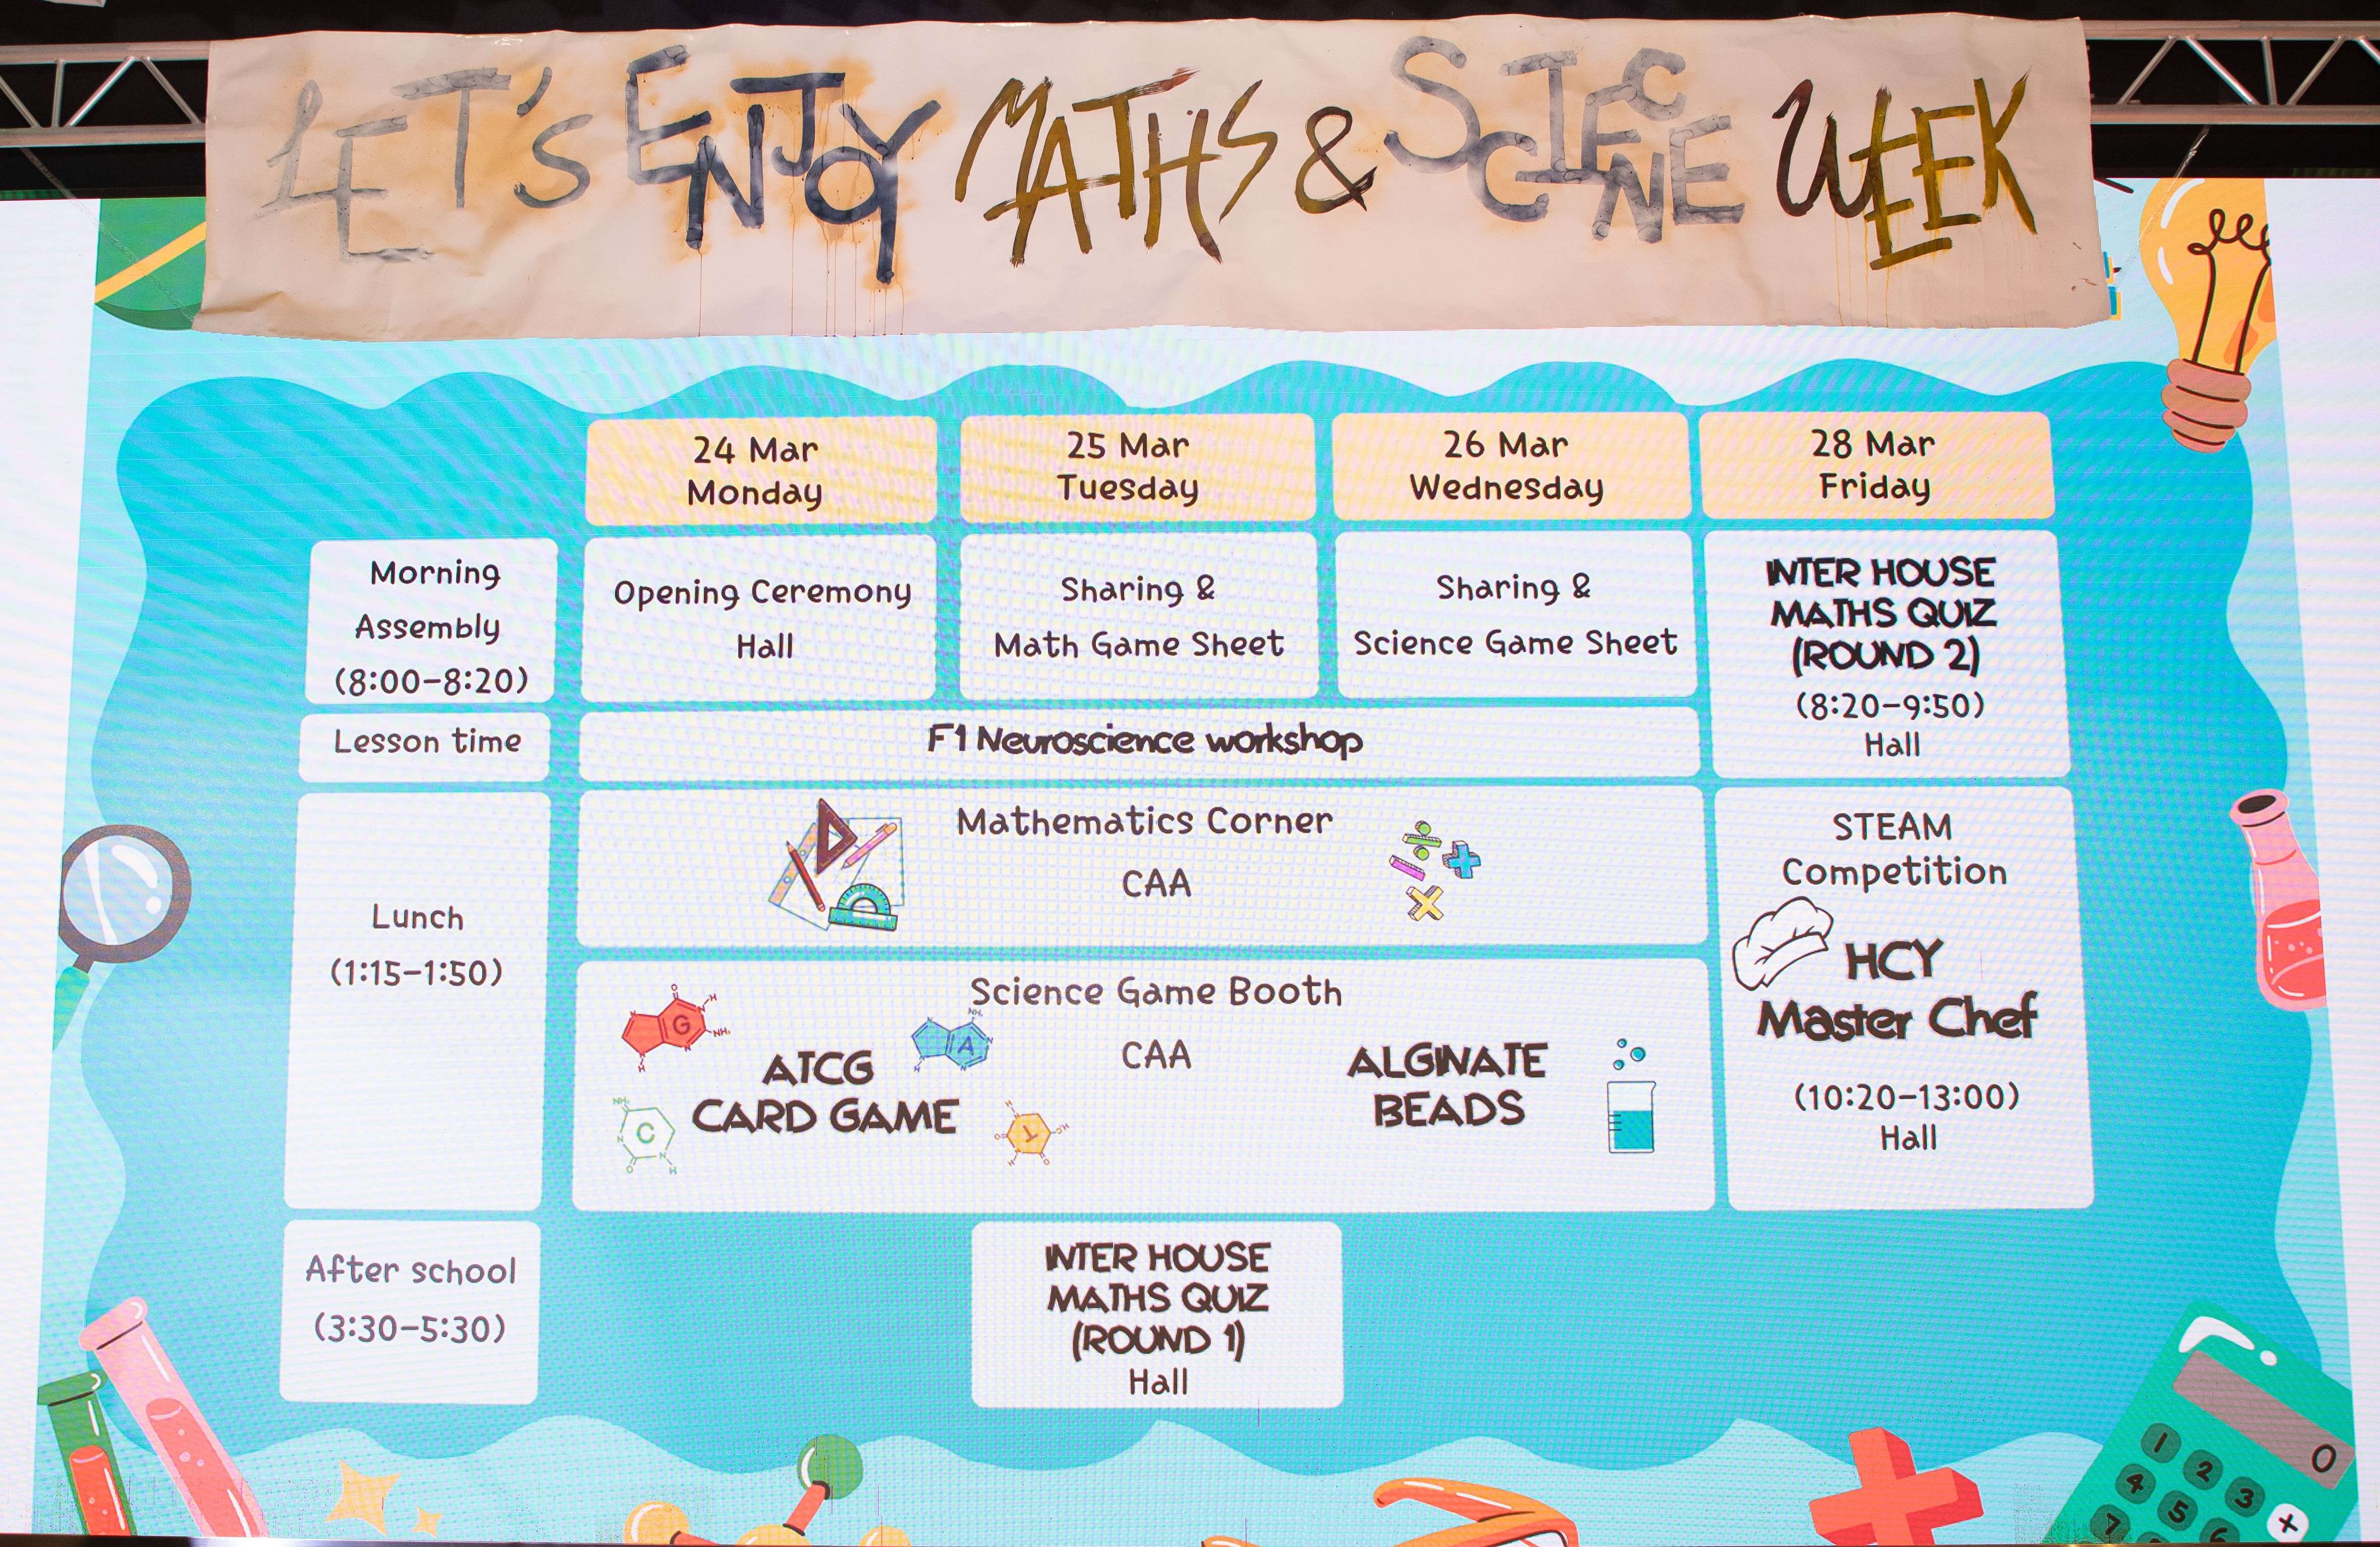 LET'S ENJOY MATHS & SCIENCE WEEK
24 Mar
Monday
25 Mar
Tuesday
26 Mar
Wednesday
28 Mar
Friday
Morning
Assembly
(8:00-8:20)
Opening Ceremony
Hall
Sharing &
Math Game Sheet
Sharing &
Science Game Sheet
INTER HOUSE
MATHS QUIZ
(ROUND 2)
(8:20-9:50)
Hall
Lesson time
F1 Neuroscience workshop
Lunch
(1:15-1:50)
Mathematics Corner
CAA
Science Game Booth
CAA
G
A
C
T
ATCG
CARD GAME
ALGINATE
BEADS
STEAM
Competition
HCY
Master Chef
(10:20-13:00)
Hall
After school
(3:30-5:30)
INTER HOUSE
MATHS QUIZ
(ROUND 1)
Hall
0
1 2 3 +
4 5 6
7